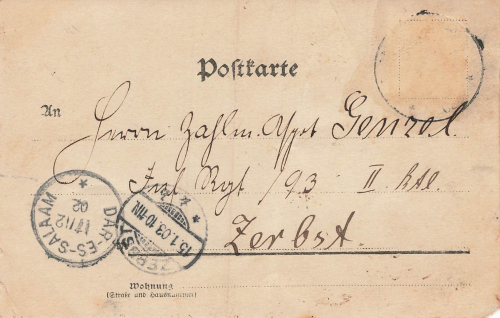 Postkarte
An
Herrn Zahlm. Aspt. Genzel.
Inf. Regt. 93 II
Zerbst.
DAR-ES-SALAAM
17/12
02
ZERBST
15.1.03.10-11N.
Wohnung
(Straße und Hausnummer)